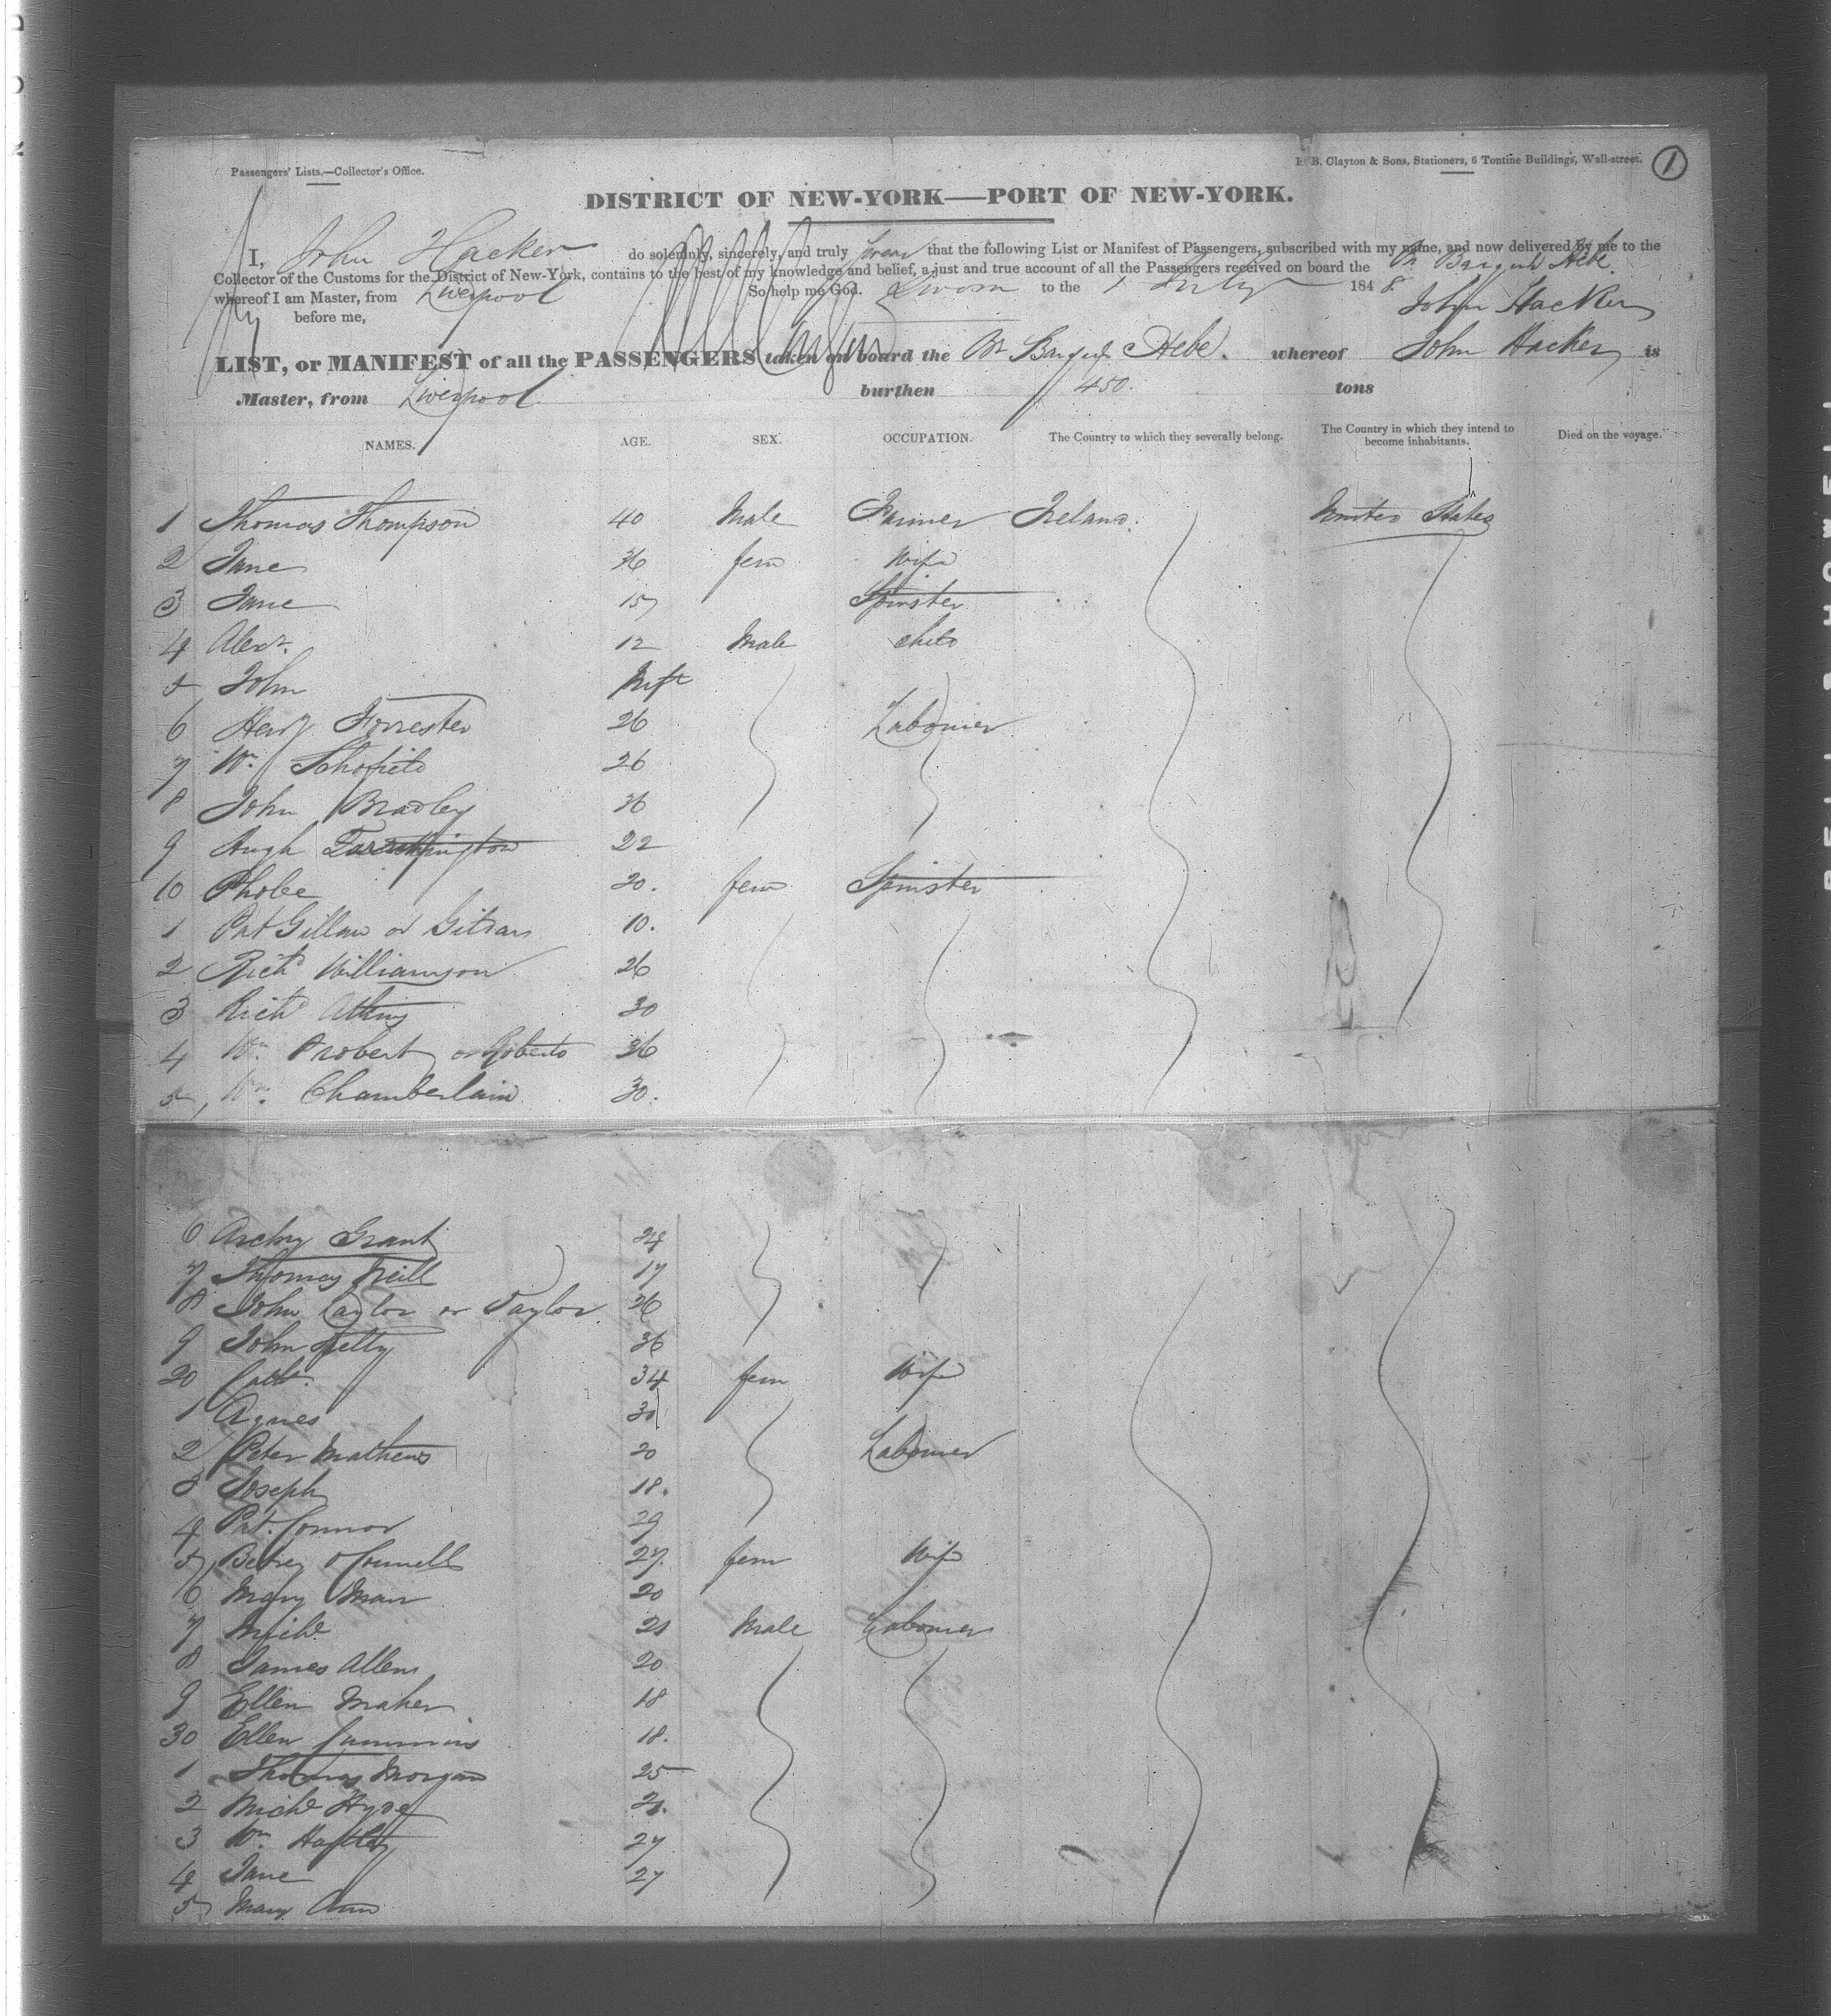 Passengers' Lists.—Collector's Office.
B. Clayton & Sons, Stationers, 6 Tontine Buildings, Wall-street. 1
DISTRICT OF NEW-YORK——PORT OF NEW-YORK.
I, John Hacker do solemnly, sincerely, and truly swear that the following List or Manifest of Passengers, subscribed with my name, and now delivered by me to the
Collector of the Customs for the District of New-York, contains to the best of my knowledge and belief, a just and true account of all the Passengers received on board the Br Barque Hebe
whereof I am Master, from Liverpool So help me God. Sworn to the 1 July 1848.
before me, John Hacker
LIST, or MANIFEST of all the PASSENGERS taken on board the Br Barque Hebe. whereof John Hacker is
Master, from Liverpool burthen 450. tons
NAMES. AGE. SEX. OCCUPATION. The Country to which they severally belong. The Country in which they intend to become inhabitants. Died on the voyage.
1 Thomas Thompson 40 Male Farmer Ireland. United States
2 Jane 36 fem Wife
3 Jane 15 Spinster
4 Alexr. 12 Male child
5 John Inft
6 Henry Forrester 26 Labourer
7 Wm. Schofield 26
8 John Bradley 36
9 Hugh 22
10 Phobe 20. fem Spinster
1 Pat Gillan or 10.
2 Richd Williamson 26
3 Richd Atkins 30
4 Wm. Probert or Roberts 36
5 Wm. Chamberlain 30.
6 Archy Grant 24
7 Thomas Neill 17
8 John Laylor or Taylor 26
9 John 36
20 Cath. 34 fem Wife
1 Agnes 30
2 Peter Mathews 20 Labourer
3 Joseph 18.
4 Pat. Connor 29
5 Betsey O Connell 27. fem Wife
6 Mary 20
7 Michl 21 Male Labourer
8 James Allen 20
9 Ellen Maher 18
30 Ellen Cummins 18.
1 Thomas Morgan 25
2 Michl Hyde 21.
3 Wm. Hartley 27
4 Jane 27
5 Mary Ann